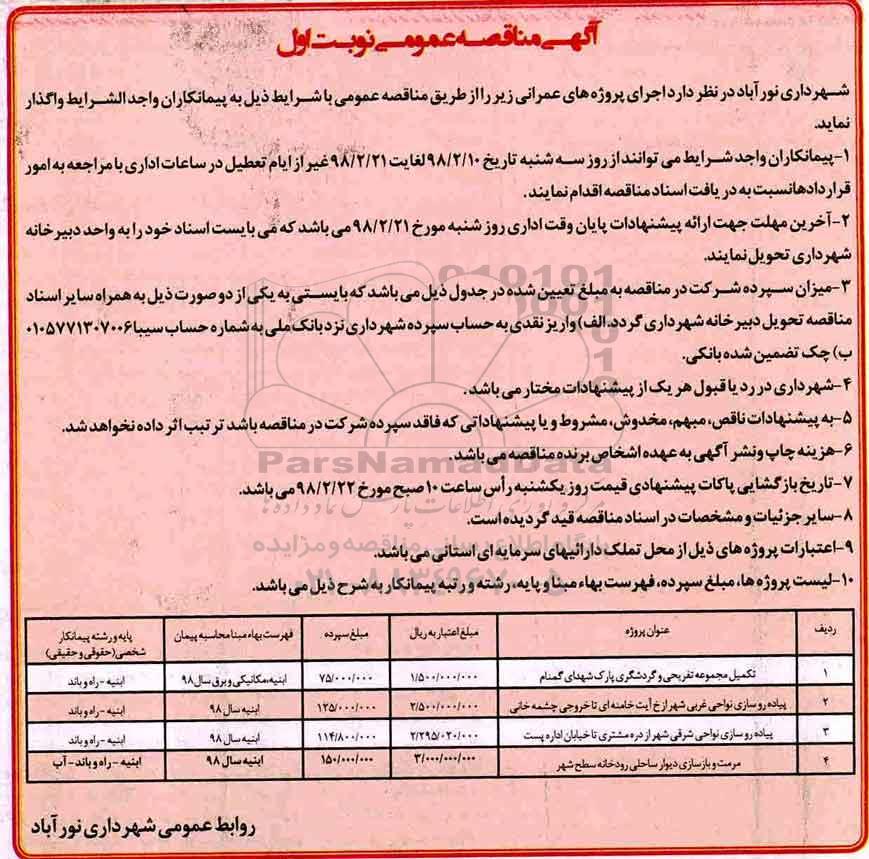 آگهی مناقصه عمومی نوبت اول
شهرداری نورآباد در نظر دارد اجرای پروژه های عمرانی زیر را از طریق مناقصه عمومی با شرایط ذیل به پیمانکاران واجد الشرایط واگذار
نماید.
۱-پیمانکاران واجد شرایط می توانند از روز سه شنبه تاریخ ۹۸/۲/۱۰ لغایت ۹۸/۲/۲۱ غیر از ایام تعطیل در ساعات اداری با مراجعه به امور
قراردادها نسبت به دریافت اسناد مناقصه اقدام نمایند.
۲-آخرین مهلت جهت ارائه پیشنهادات پایان وقت اداری روز شنبه مورخ ۹۸/۲/۲۱ می باشد که می بایست اسناد خود را به واحد دبیرخانه
شهرداری تحویل نمایند.
۳-میزان سپرده شرکت در مناقصه به مبلغ تعیین شده در جدول ذیل می باشد که بایستی به یکی از دو صورت ذیل به همراه سایر اسناد
مناقصه تحویل دبیرخانه شهرداری گردد.الف) واریز نقدی به حساب سپرده شهرداری نزد بانک ملی به شماره حساب سیبا ۰۱۰۵۷۷۱۳۰۷۰۰۶
ب) چک تضمین شده بانکی.
۴-شهرداری در رد یا قبول هر یک از پیشنهادات مختار می باشد.
۵-به پیشنهادات ناقص، مبهم، مخدوش، مشروط و یا پیشنهاداتی که فاقد سپرده شرکت در مناقصه باشد ترتیب اثر داده نخواهد شد.
۶-هزینه چاپ ونشر آگهی به عهده اشخاص برنده مناقصه می باشد.
ParsNamadData
۷-تاریخ بازگشایی پاکات پیشنهادی قیمت روز یکشنبه رأس ساعت ۱۰ صبح مورخ ۹۸/۲/۲۲ می باشد.
۸-سایر جزئیات و مشخصات در اسناد مناقصه قید گردیده است.
پایگاه اطلاع رسانی مناقصه و مزایده
۹-اعتبارات پروژه های ذیل از محل تملک دارائیهای سرمایه ای استانی می باشد.
۱۰-لیست پروژه ها، مبلغ سپرده، فهرست بهاء مبنا و پایه، رشته و رتبه پیمانکار به شرح ذیل می باشد.
ردیف عنوان پروژه مبلغ اعتبار به ریال مبلغ سپرده فهرست بهاء مبنا محاسبه پیمان پایه و رشته پیمانکار
شخصی(حقوقی و حقیقی)
۱ تکمیل مجموعه تفریحی و گردشگری پارک شهدای گمنام ۱/۵۰۰/۰۰۰/۰۰۰ ۷۵/۰۰۰/۰۰۰ ابنیه،مکانیکی و برق سال ۹۸ ابنیه - راه و باند
۲ پیاده رو سازی نواحی غربی شهر از خ آیت خامنه ای تا خروجی چشمه خانی ۲/۵۰۰/۰۰۰/۰۰۰ ۱۲۵/۰۰۰/۰۰۰ ابنیه سال ۹۸ ابنیه - راه و باند
۳ پیاده رو سازی نواحی شرقی شهر از دره مشتری تا خیابان اداره پست ۲/۲۹۵/۰۲۰/۰۰۰ ۱۱۴/۸۰۰/۰۰۰ ابنیه سال ۹۸ ابنیه - راه و باند
۴ مرمت و بازسازی دیوار ساحلی رودخانه سطح شهر ۳/۰۰۰/۰۰۰/۰۰۰ ۱۵۰/۰۰۰/۰۰۰ ابنیه سال ۹۸ ابنیه - راه و باند - آب
روابط عمومی شهرداری نورآباد